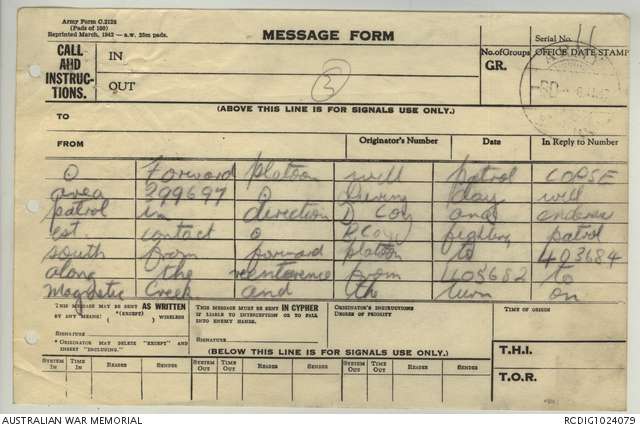 Army Form C.2128
(Pads of 100)
Reprinted March, 1942
MESSAGE FORM
Serial No. 11
CALL AND INSTRUCTIONS.
IN
OUT
3
No. of Groups
GR.
OFFICE DATE STAMP
(ABOVE THIS LINE IS FOR SIGNALS USE ONLY.)
TO
FROM
Originator's Number
Date
In Reply to Number
O Forward platoon will patrol COPSE
area 399697 O During day will
patrol in direction D Coy and
est. contact O fighting patrol
south from forward platoon to 403684
along the from 403682 to
Magnetic Creek and the turn on
THIS MESSAGE MAY BE SENT AS WRITTEN
BY ANY MEANS (EXCEPT) WIRELESS
SIGNATURE
* ORIGINATOR MAY DELETE "EXCEPT" AND
INSERT "INCLUDING."
THIS MESSAGE MUST BE SENT IN CYPHER
IF LIABLE TO INTERCEPTION OR TO FALL
INTO ENEMY HANDS.
SIGNATURE
ORIGINATOR'S INSTRUCTIONS
DEGREE OF PRIORITY
TIME OF ORIGIN
T.H.I.
T.O.R.
(BELOW THIS LINE IS FOR SIGNALS USE ONLY.)
SYSTEM IN
TIME IN
READER
SENDER
SYSTEM OUT
TIME OUT
READER
SENDER
SYSTEM OUT
TIME OUT
READER
SENDER
AUSTRALIAN WAR MEMORIAL
RCDIG1024079